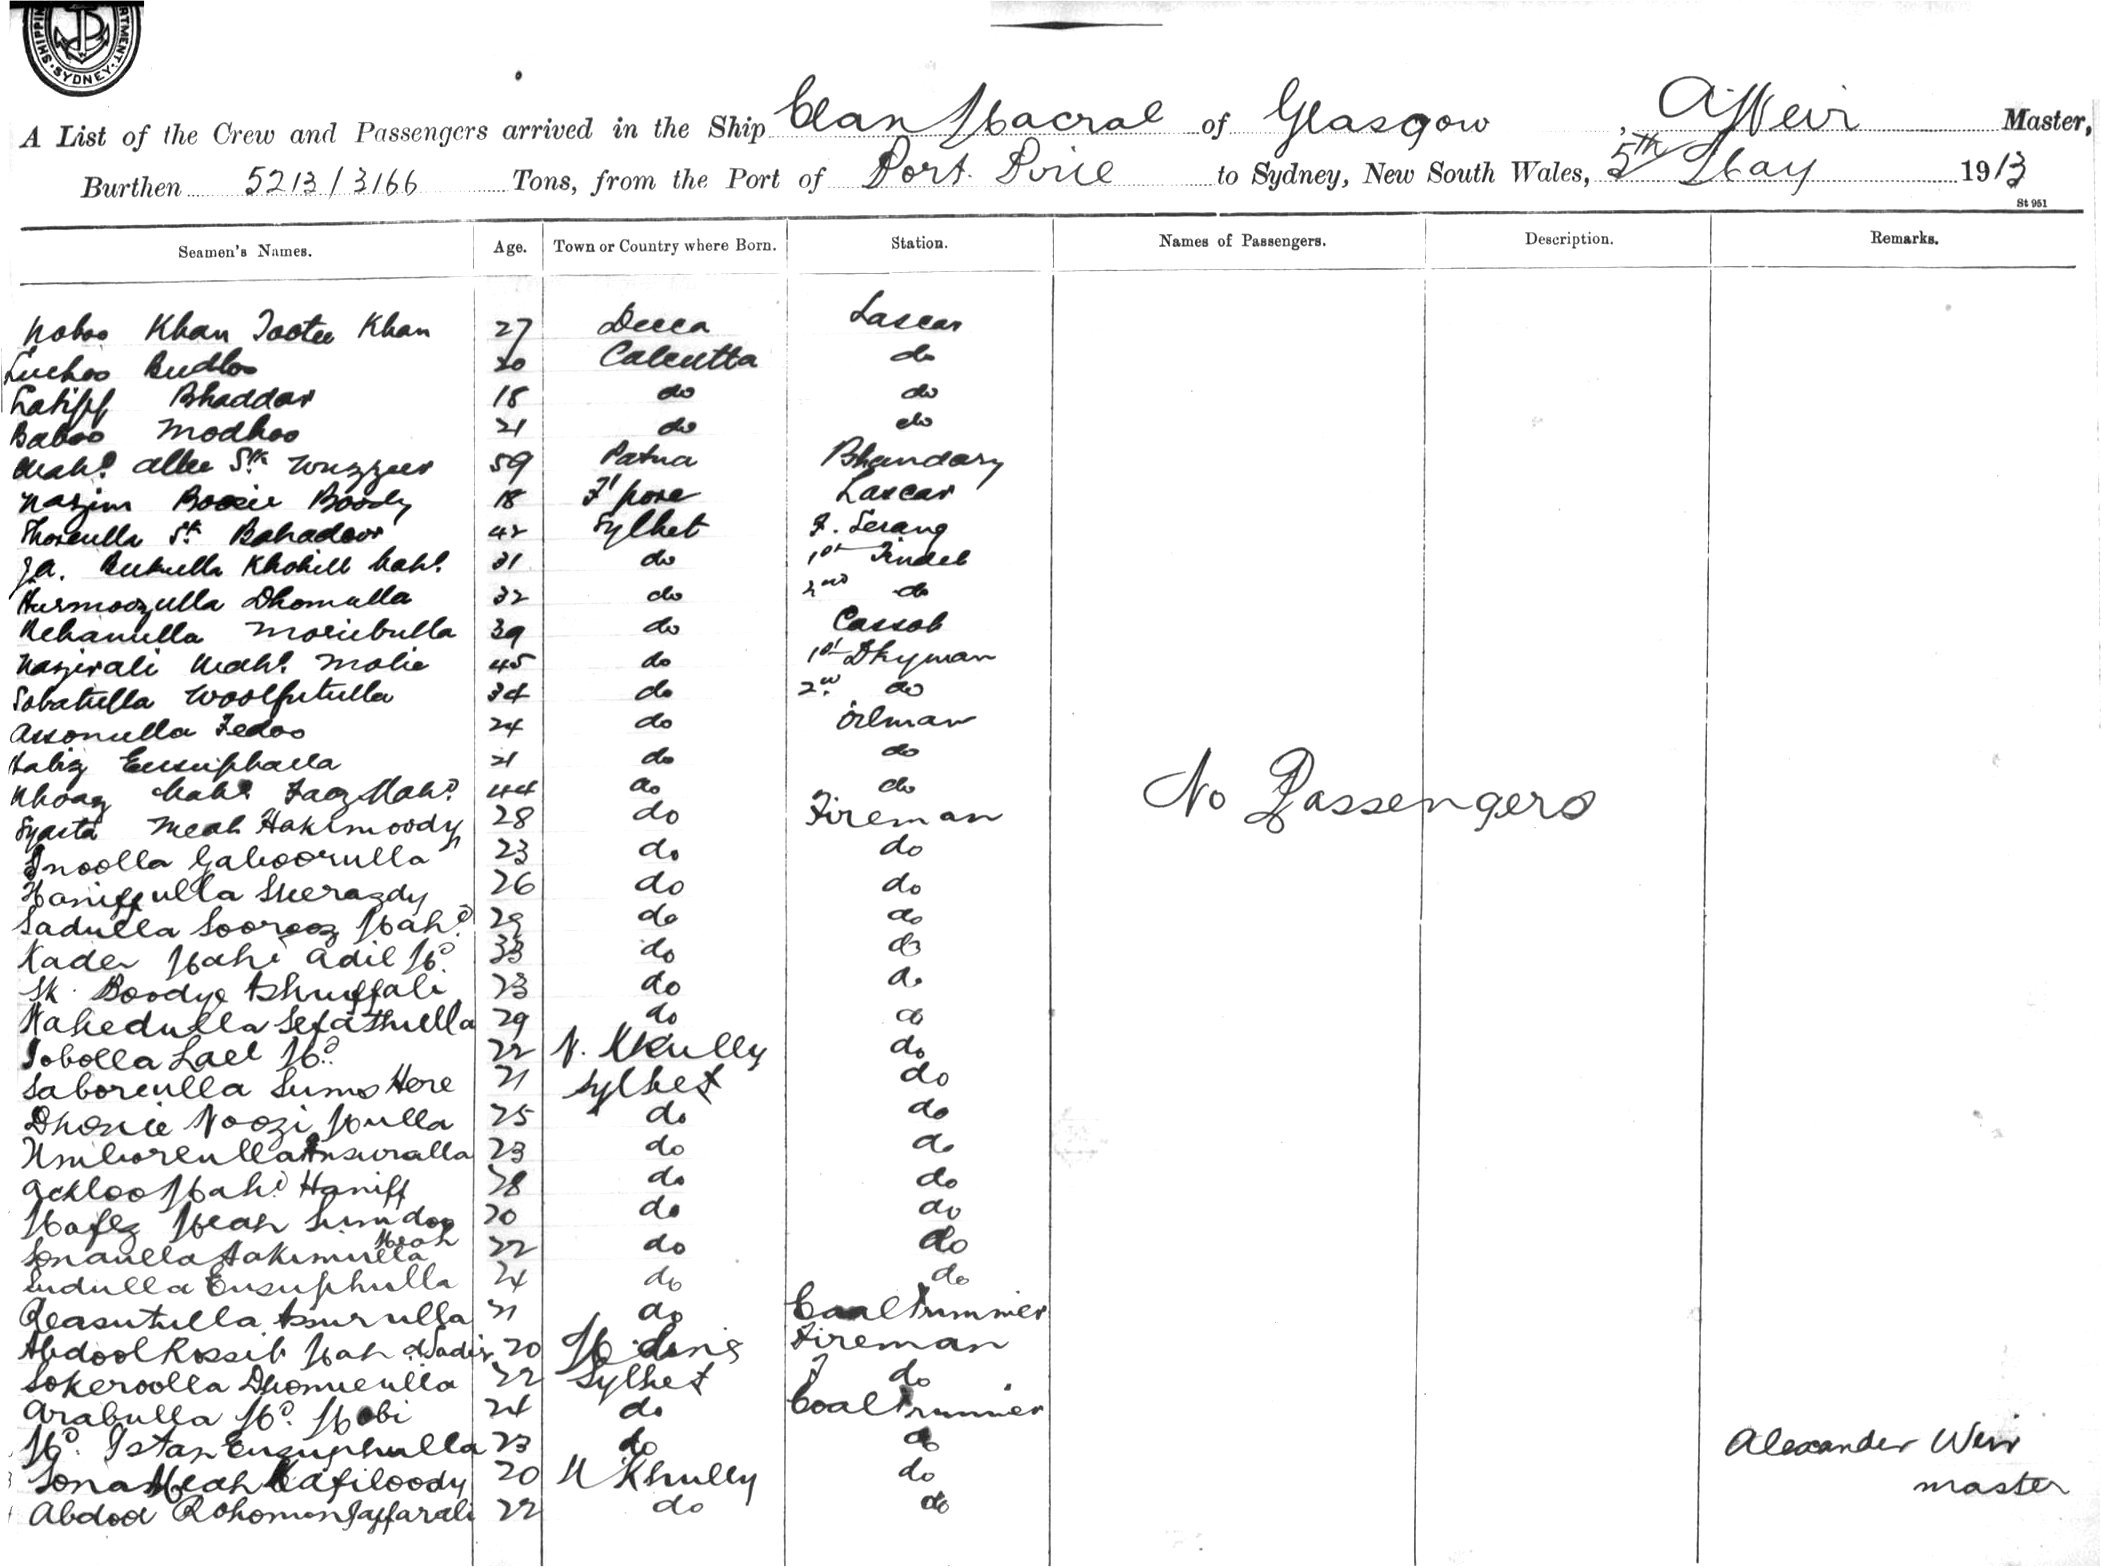 SHIPPING DEPARTMENT SYDNEY
A List of the Crew and Passengers arrived in the Ship Clan Macrae of Glasgow, A Weir Master,
Burthen 5213/3166 Tons, from the Port of Port Pirie to Sydney, New South Wales, 5th May 1913
St 951
Seamen's Names. Age. Town or Country where Born. Station. Names of Passengers. Description. Remarks.
Noboo Khan Tootee Khan 27 Decca Lascar
Luchoo Budhoo 20 Calcutta do
Latiff Bhaddar 18 do do
Baboo Modhoo 21 do do
Mahd. Allee Sk Wuzzeer 59 Patna Bhandary
Nazim Boxie Boody 18 F'pore Lascar
Sk. Bahadoor 42 Sylhet F. Serang
31 do 1st Tindel
Hurmoozulla Dhomulla 32 do 2nd do
Rehamulla Moriebulla 39 do Cassob
Nazirali Mahd. Molie 45 do 1st Dkyman
Sobatulla Woolfutulla 34 do 2nd do
Assonulla Fedoo 24 do Oilman
Eusuphalla 21 do do
Khoaz Mahd. Faiz Mahd. 44 do do
Syasta Meah Hakimoody 28 do Fireman
Inoolla Gahoorulla 23 do do
Haniffulla Sherazdy 26 do do
Sadulla Soorooz Mahd. 29 do do
Kader Mahd Adil Md. 33 do do
Sk. Boodye Ashruffali 23 do do
Wahedulla Sefathulla 29 do do
Sobolla Lall Md. 22 N. Kkully do
Saboreulla Sumo Here 21 Sylhet do
Dhonie Noozi Mulla 25 do do
Umboreulla Ansuralla 23 do do
Ackloo Mahd. Haniff 28 do do
Mafez Meah Sumdoo Meah 20 do do
Sonaulla Hakimulla 22 do do
Sudulla Eusuphulla 24 do do
Reasutulla Assurulla 21 do Coal Trimmer
Abdool Rossib Mahd. Sadir 20 Fireman
Sokeroolla Dhomieulla 22 Sylhet do
Arabulla Md. Mobi 24 do Coal Trimmer
Md. Istap Eusuphulla 23 do do
Sona Meah Kafiloody 20 N Khully do
Abdool Rohomon Jaffarali 22 do do
No Passengers
Alexander Weir
master